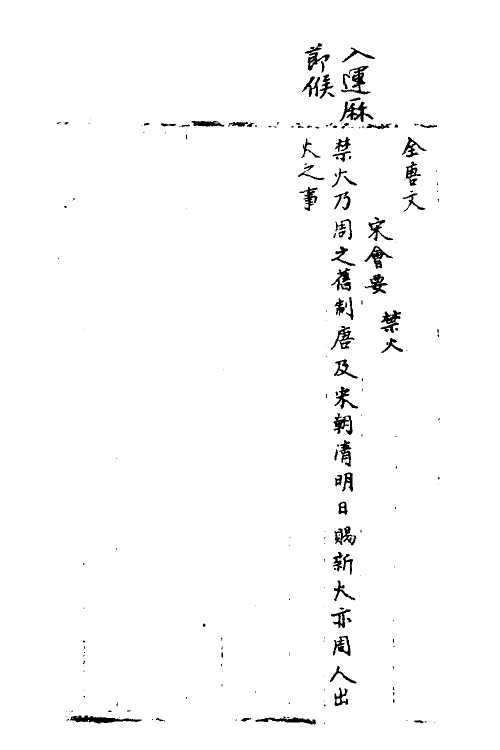 入運厤
節候
全唐文
宋會要
禁火
禁火乃周之舊制唐及宋朝清明日賜新火亦周人出
火之事